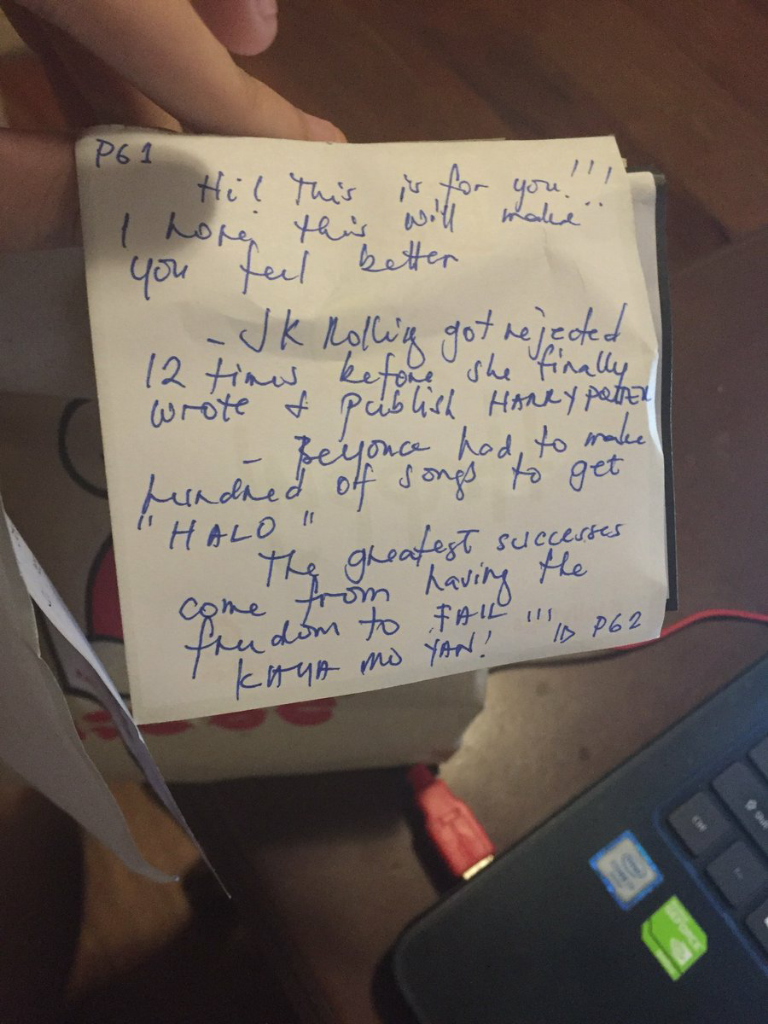 PG 1
Hi! This is for you!!!
I hope this will make
you feel better
- JK Rolling got rejected
12 times before she finally
wrote & publish HARRY POTTER
- Beyonce had to make
hundred of songs to get
"HALO"
The greatest successes
come from having the
freedom to FAIL !!!
KAYA MO YAN!
PG 2